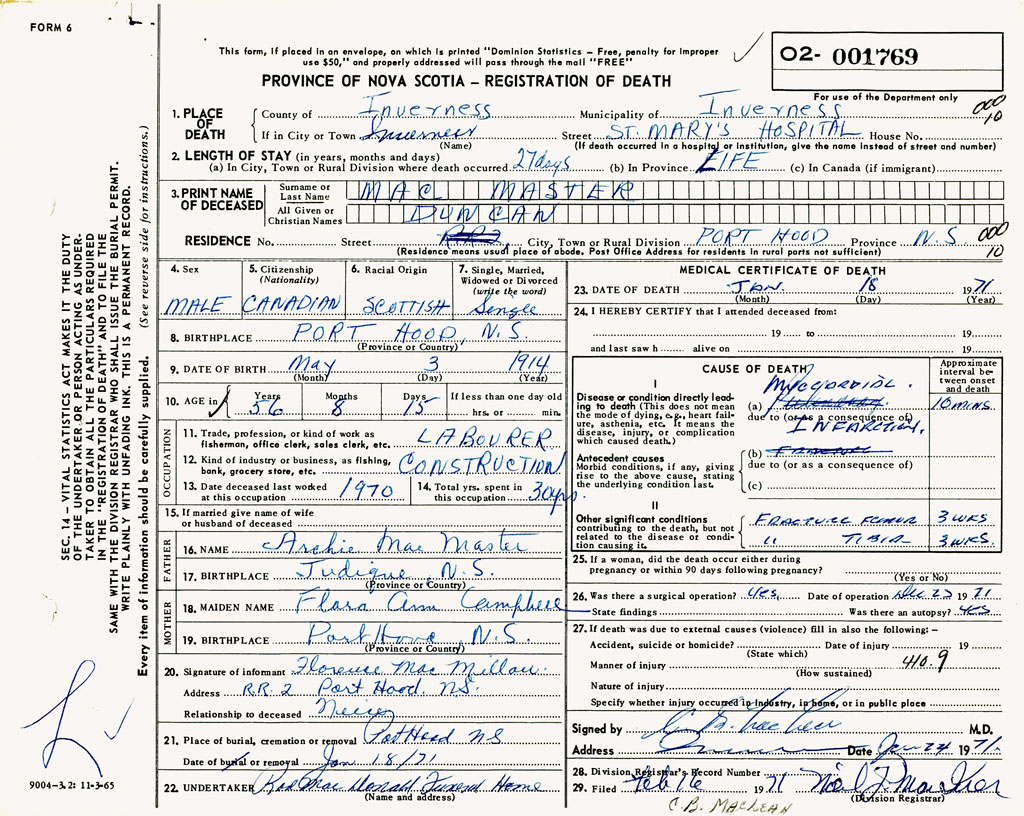 FORM 6
This form, if placed in an envelope, on which is printed "Dominion Statistics – Free, penalty for improper
use $50," and properly addressed will pass through the mail "FREE"
PROVINCE OF NOVA SCOTIA – REGISTRATION OF DEATH
02- 001769
For use of the Department only
1. PLACE OF DEATH County of Inverness Municipality of Inverness 000 10
If in City or Town Inverness Street ST. MARY'S HOSPITAL House No.
(Name) (If death occurred in a hospital or institution, give the name instead of street and number)
2. LENGTH OF STAY (in years, months and days)
(a) In City, Town or Rural Division where death occurred 27 days (b) In Province LIFE (c) In Canada (if immigrant)
3. PRINT NAME OF DECEASED Surname or Last Name MAC MASTER
All Given or Christian Names DUNCAN
RESIDENCE No. Street City, Town or Rural Division PORT HOOD Province N.S 000 10
(Residence means usual place of abode. Post Office Address for residents in rural parts not sufficient)
4. Sex MALE
5. Citizenship (Nationality) CANADIAN
6. Racial Origin SCOTTISH
7. Single, Married, Widowed or Divorced (write the word) Single
8. BIRTHPLACE PORT HOOD, N.S.
(Province or Country)
9. DATE OF BIRTH May 3 1914
(Month) (Day) (Year)
10. AGE in Years 56 Months 8 Days 15 If less than one day old
hrs. or min.
OCCUPATION
11. Trade, profession, or kind of work as fisherman, office clerk, sales clerk, etc. LABOURER
12. Kind of industry or business, as fishing, bank, grocery store, etc. CONSTRUCTION
13. Date deceased last worked at this occupation 1970 14. Total yrs. spent in this occupation 30 yrs.
15. If married give name of wife
or husband of deceased
FATHER
16. NAME Archie Mac Master
17. BIRTHPLACE Judique, N.S.
(Province or Country)
MOTHER
18. MAIDEN NAME Flora Ann Campbell
19. BIRTHPLACE Port Hood, N.S.
(Province or Country)
20. Signature of informant Florence Mac Millan
Address R.R. 2 Port Hood, NS.
Relationship to deceased Neice
21. Place of burial, cremation or removal Port Hood NS
Date of burial or removal Jan 18/71
22. UNDERTAKER Rod Mac Donald Funeral Home
(Name and address)
MEDICAL CERTIFICATE OF DEATH
23. DATE OF DEATH JAN. 18 1971
(Month) (Day) (Year)
24. I HEREBY CERTIFY that I attended deceased from:
19 to 19
and last saw h alive on 19
CAUSE OF DEATH
Approximate interval between onset and death
I
Disease or condition directly leading to death (This does not mean the mode of dying, e.g., heart failure, asthenia, etc. It means the disease, injury, or complication which caused death.)
(a) MYOCARDIAL 10 mins
due to (or as a consequence of)
INFARCTION.
Antecedent causes
Morbid conditions, if any, giving rise to the above cause, stating the underlying condition last.
(b)
due to (or as a consequence of)
(c)
II
Other significant conditions contributing to the death, but not related to the disease or condition causing it.
FRACTURE FEMUR 3 WKS
" TIBIA 3 WKS.
25. If a woman, did the death occur either during
pregnancy or within 90 days following pregnancy?
(Yes or No)
26. Was there a surgical operation? yes Date of operation Dec 23 1971
State findings Was there an autopsy? yes
27. If death was due to external causes (violence) fill in also the following:–
Accident, suicide or homicide? Date of injury 19
(State which)
Manner of injury 410.9
(How sustained)
Nature of injury
Specify whether injury occurred in industry, in home, or in public place
Signed by C. B. MacLean M.D.
Address Date Jan 24 1971.
28. Division Registrar's Record Number
29. Filed Feb 16 1971
(Division Registrar)
C.B. MACLEAN
SEC. 14 – VITAL STATISTICS ACT MAKES IT THE DUTY
OF THE UNDERTAKER OR PERSON ACTING AS UNDER-
TAKER TO OBTAIN ALL THE PARTICULARS REQUIRED
IN THE "REGISTRATION OF DEATH" AND TO FILE THE
SAME WITH THE DIVISION REGISTRAR WHO SHALL ISSUE THE BURIAL PERMIT.
WRITE PLAINLY WITH UNFADING INK. THIS IS A PERMANENT RECORD.
Every item of information should be carefully supplied. (See reverse side for instructions.)
9004–3.2: 11-3-65